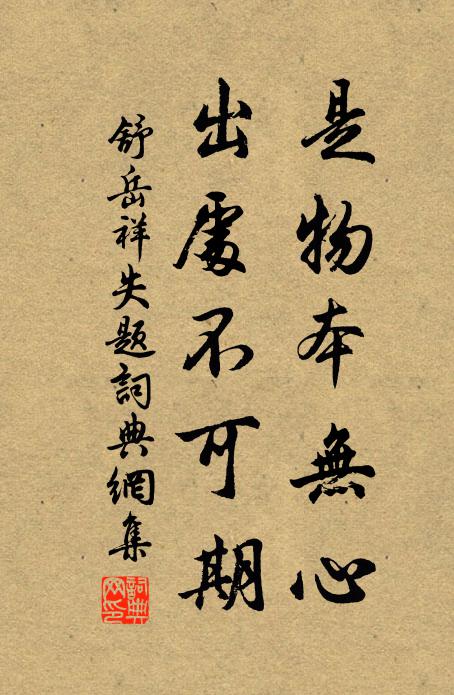 是物本無心
出處不可期
舒岳祥失題詞典網集
詞典網印